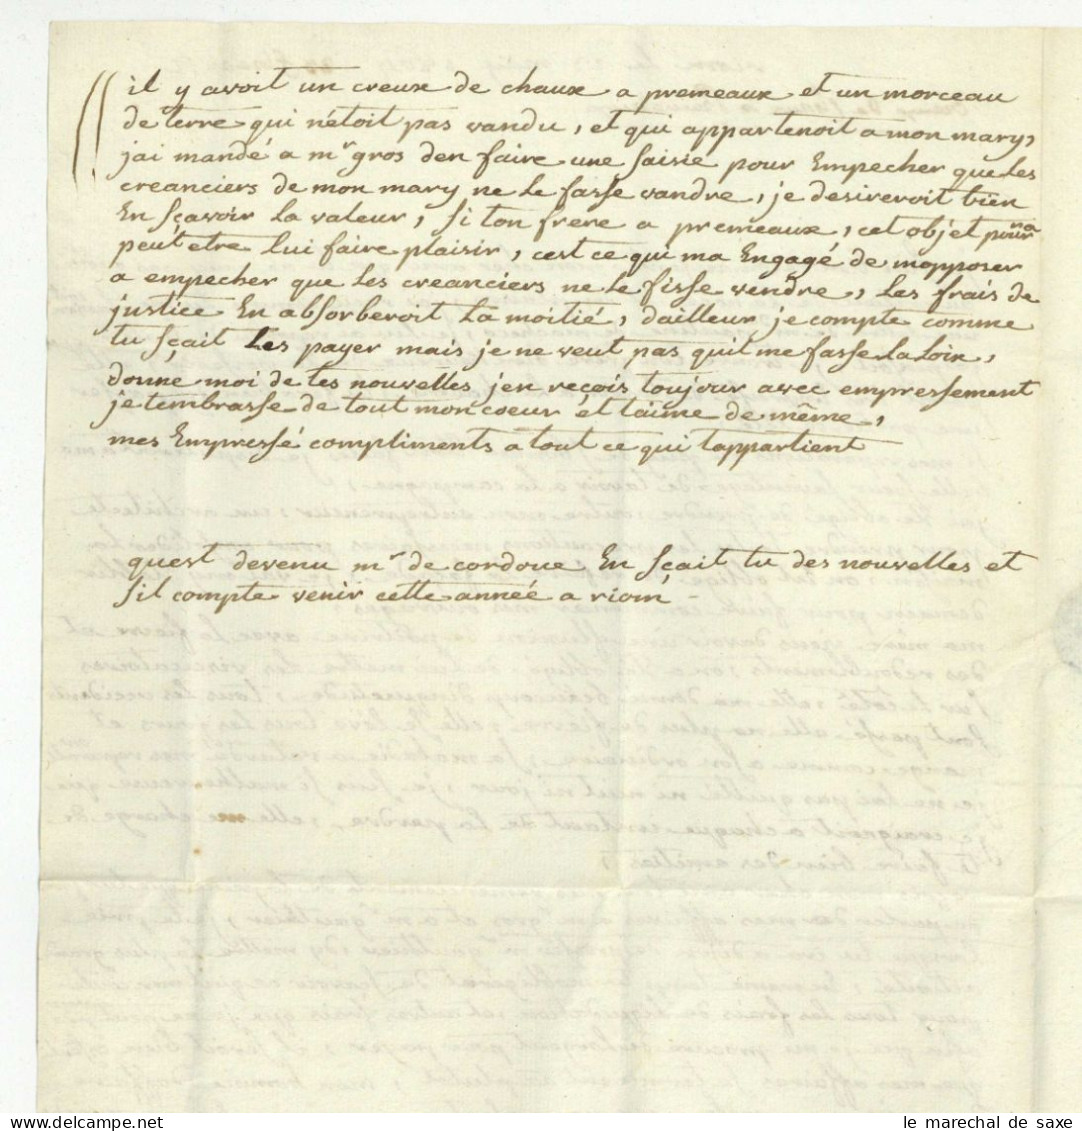 il y avoit un creux de chaux a premeaux et un morceau
de terre qui nétoit pas vandu, et qui appartenoit a mon mary,
jai mandé a mr gros den faire une saisie pour Empecher que les
creanciers de mon mary ne le fasse vandre, je desireroit bien
En sçavoir la valeur, si ton frere a premeaux, cet objet pourra
peut etre lui faire plaisir, cest ce qui ma Engagé de mopposer
a empecher que les creanciers ne le fisse vendre, les frais de
justice En absorberoit la moitié, dailleur je compte comme
tu sçait les payer mais je ne veut pas quil me fasse la loix,
donne moi de tes nouvelles jen reçois toujour avec empressement
je tembrasse de tout mon coeur et taime de même,
mes Empressé compliments a tout ce qui tappartient
quest devenu mr de cordoue En sçait tu des nouvelles et
sil compte venir cette année a riom
www.delcampe.net
le marechal de saxe